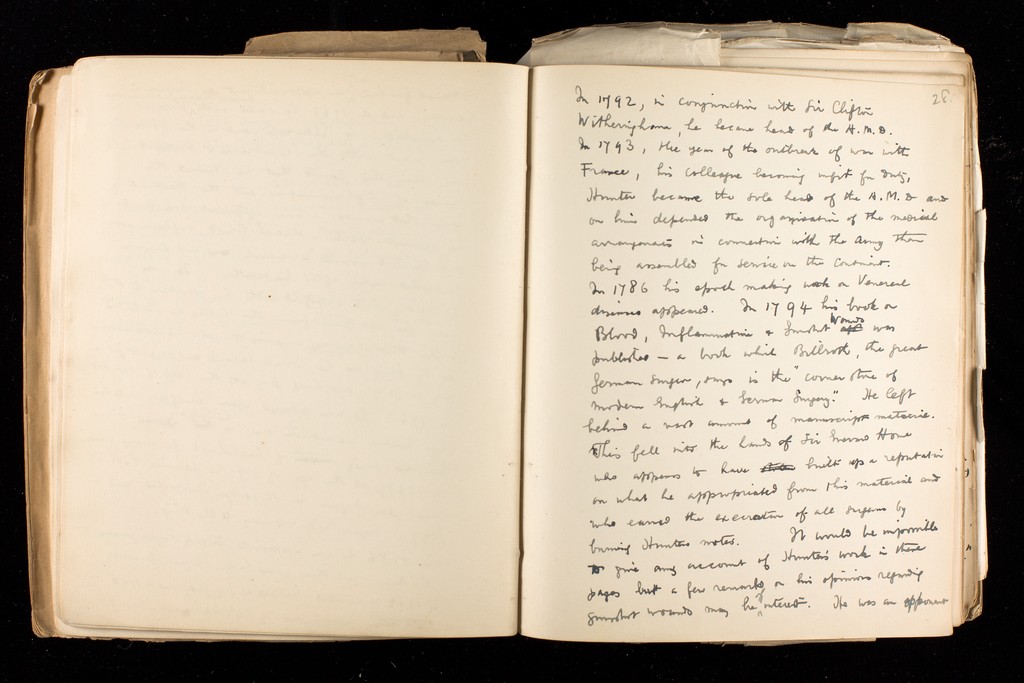 28.
In 1792, in conjunction with Sir Clifton
Wittheringhame, he became head of the A.M.D.
In 1793, the year of the outbreak of war with
France, his colleague becoming unfit for duty,
Hunter became the sole head of the A.M.D and
on him depended the organisation of the medical
arrangements in connection with the army then
being assembled for service on the Continent.
In 1786 his epoch making work on Venereal
diseases appeared. In 1794 his book on
Blood, Inflammation & Gunshot Wounds was
published – a book which Billroth, the great
German surgeon, says is the "corner stone of
modern English & German Surgery." He left
behind a vast amount of manuscript material.
This fell into the hands of Sir Everard Home
who appears to have built up a reputation
on what he appropriated from this material and
who earned the execration of all surgeons by
burning Hunters notes. It would be impossible
to give any account of Hunter's work in these
pages but a few remarks on his opinions regarding
gunshot wounds may be of interest. He was an opponent